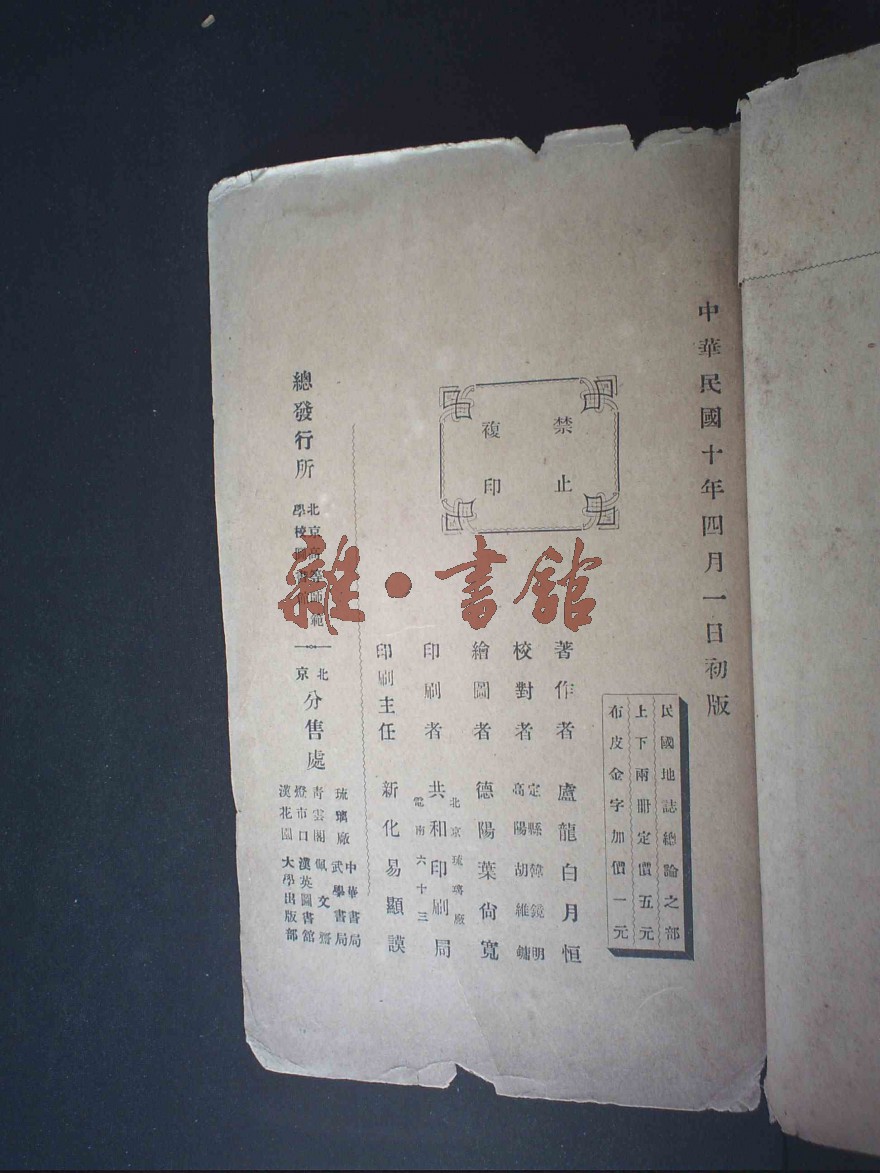 中華民國十年四月一日初版
民國地誌總論之部
上下兩册定價五元
布皮金字加價一元
禁止
複印
著作者 盧龍白月恒
校對者 定縣韓鏡明
高陽胡維鏞
繪圖者 德陽葉尙寬
印刷者 共和印刷局
北京琉璃廠
電南六十三
印刷主任 新化易顯謨
總發行所
北京高等師範
學校
北京分售處
琉璃廠 中華書局
武學書局
靑雲閣 佩文齋
燈市口 漢英圖書館
漢花園 大學出版部
雜·書館